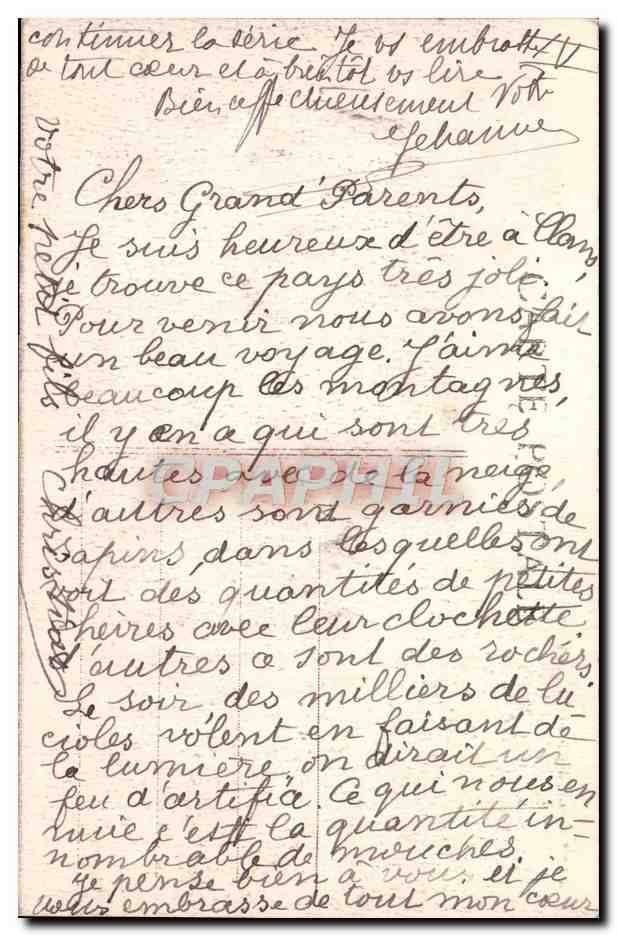 continuer la série. Je vs embrasse XV
de tout cœur et à bientôt vs lire
Bien affectueusement Votre
Jehanne
Chers Grand'Parents,
Je suis heureux d'être à Clans,
je trouve ce pays très joli.
Pour venir nous avons fait
un beau voyage. J'aime
beaucoup les montagnes,
il y en a qui sont très
hautes avec de la neige,
d'autres sont garnies de
sapins, dans lesquelles ont
voit des quantités de petites
chèvres avec leur clochette
d'autres ce sont des rochers.
Le soir des milliers de lu
cioles vôlent en faisant de
la lumière, on dirait un
feu d'artifice. Ce qui nous en
nuie c'est la quantité in-
nombrable de mouches.
Je pense bien à vous et je
vous embrasse de tout mon cœur
Votre petit fils Christian
CARTE POSTALE
CPAPHIL